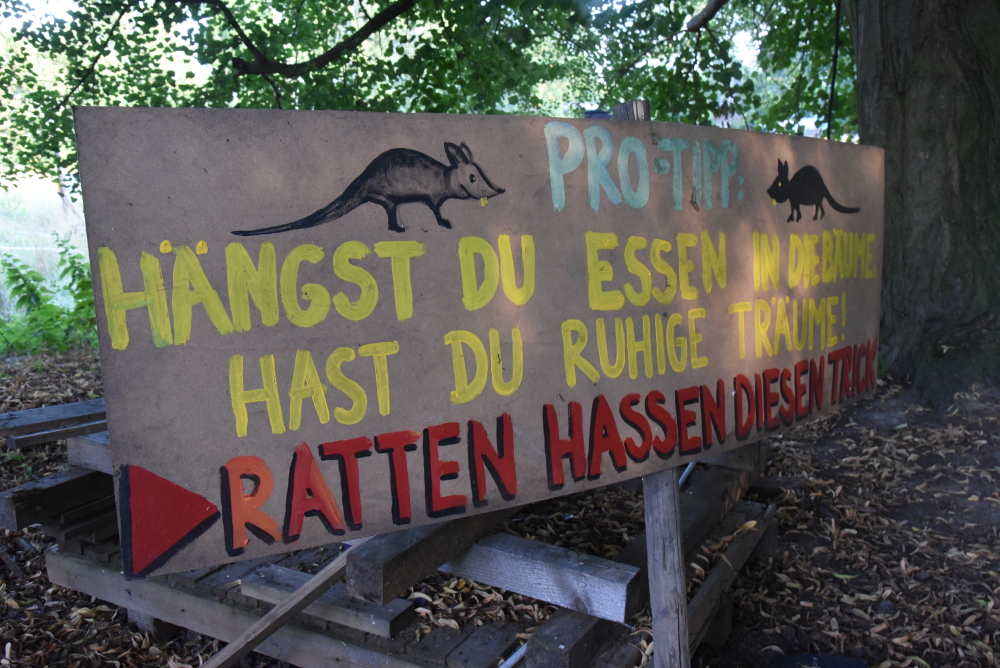 PRO-TIPP:
HÄNGST DU ESSEN IN DIE BÄUME,
HAST DU RUHIGE TRÄUME!
RATTEN HASSEN DIESEN TRICK